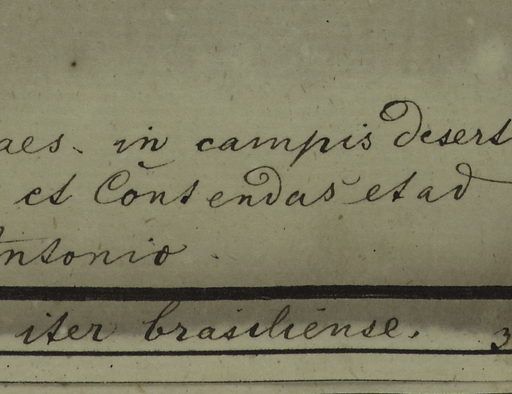 aes. in campis desert
et Contendas et ad
Antonio.
iter brasiliense. 3